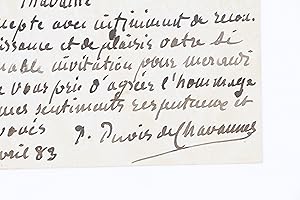 Madame
cepte avec infiniment de recon
issance et de plaisir votre bi
mable invitation pour mercredi
e vous prie d'agréer l'hommage
mes sentiments respectueux et
voués
P. Puvis de Chavannes
vril 83